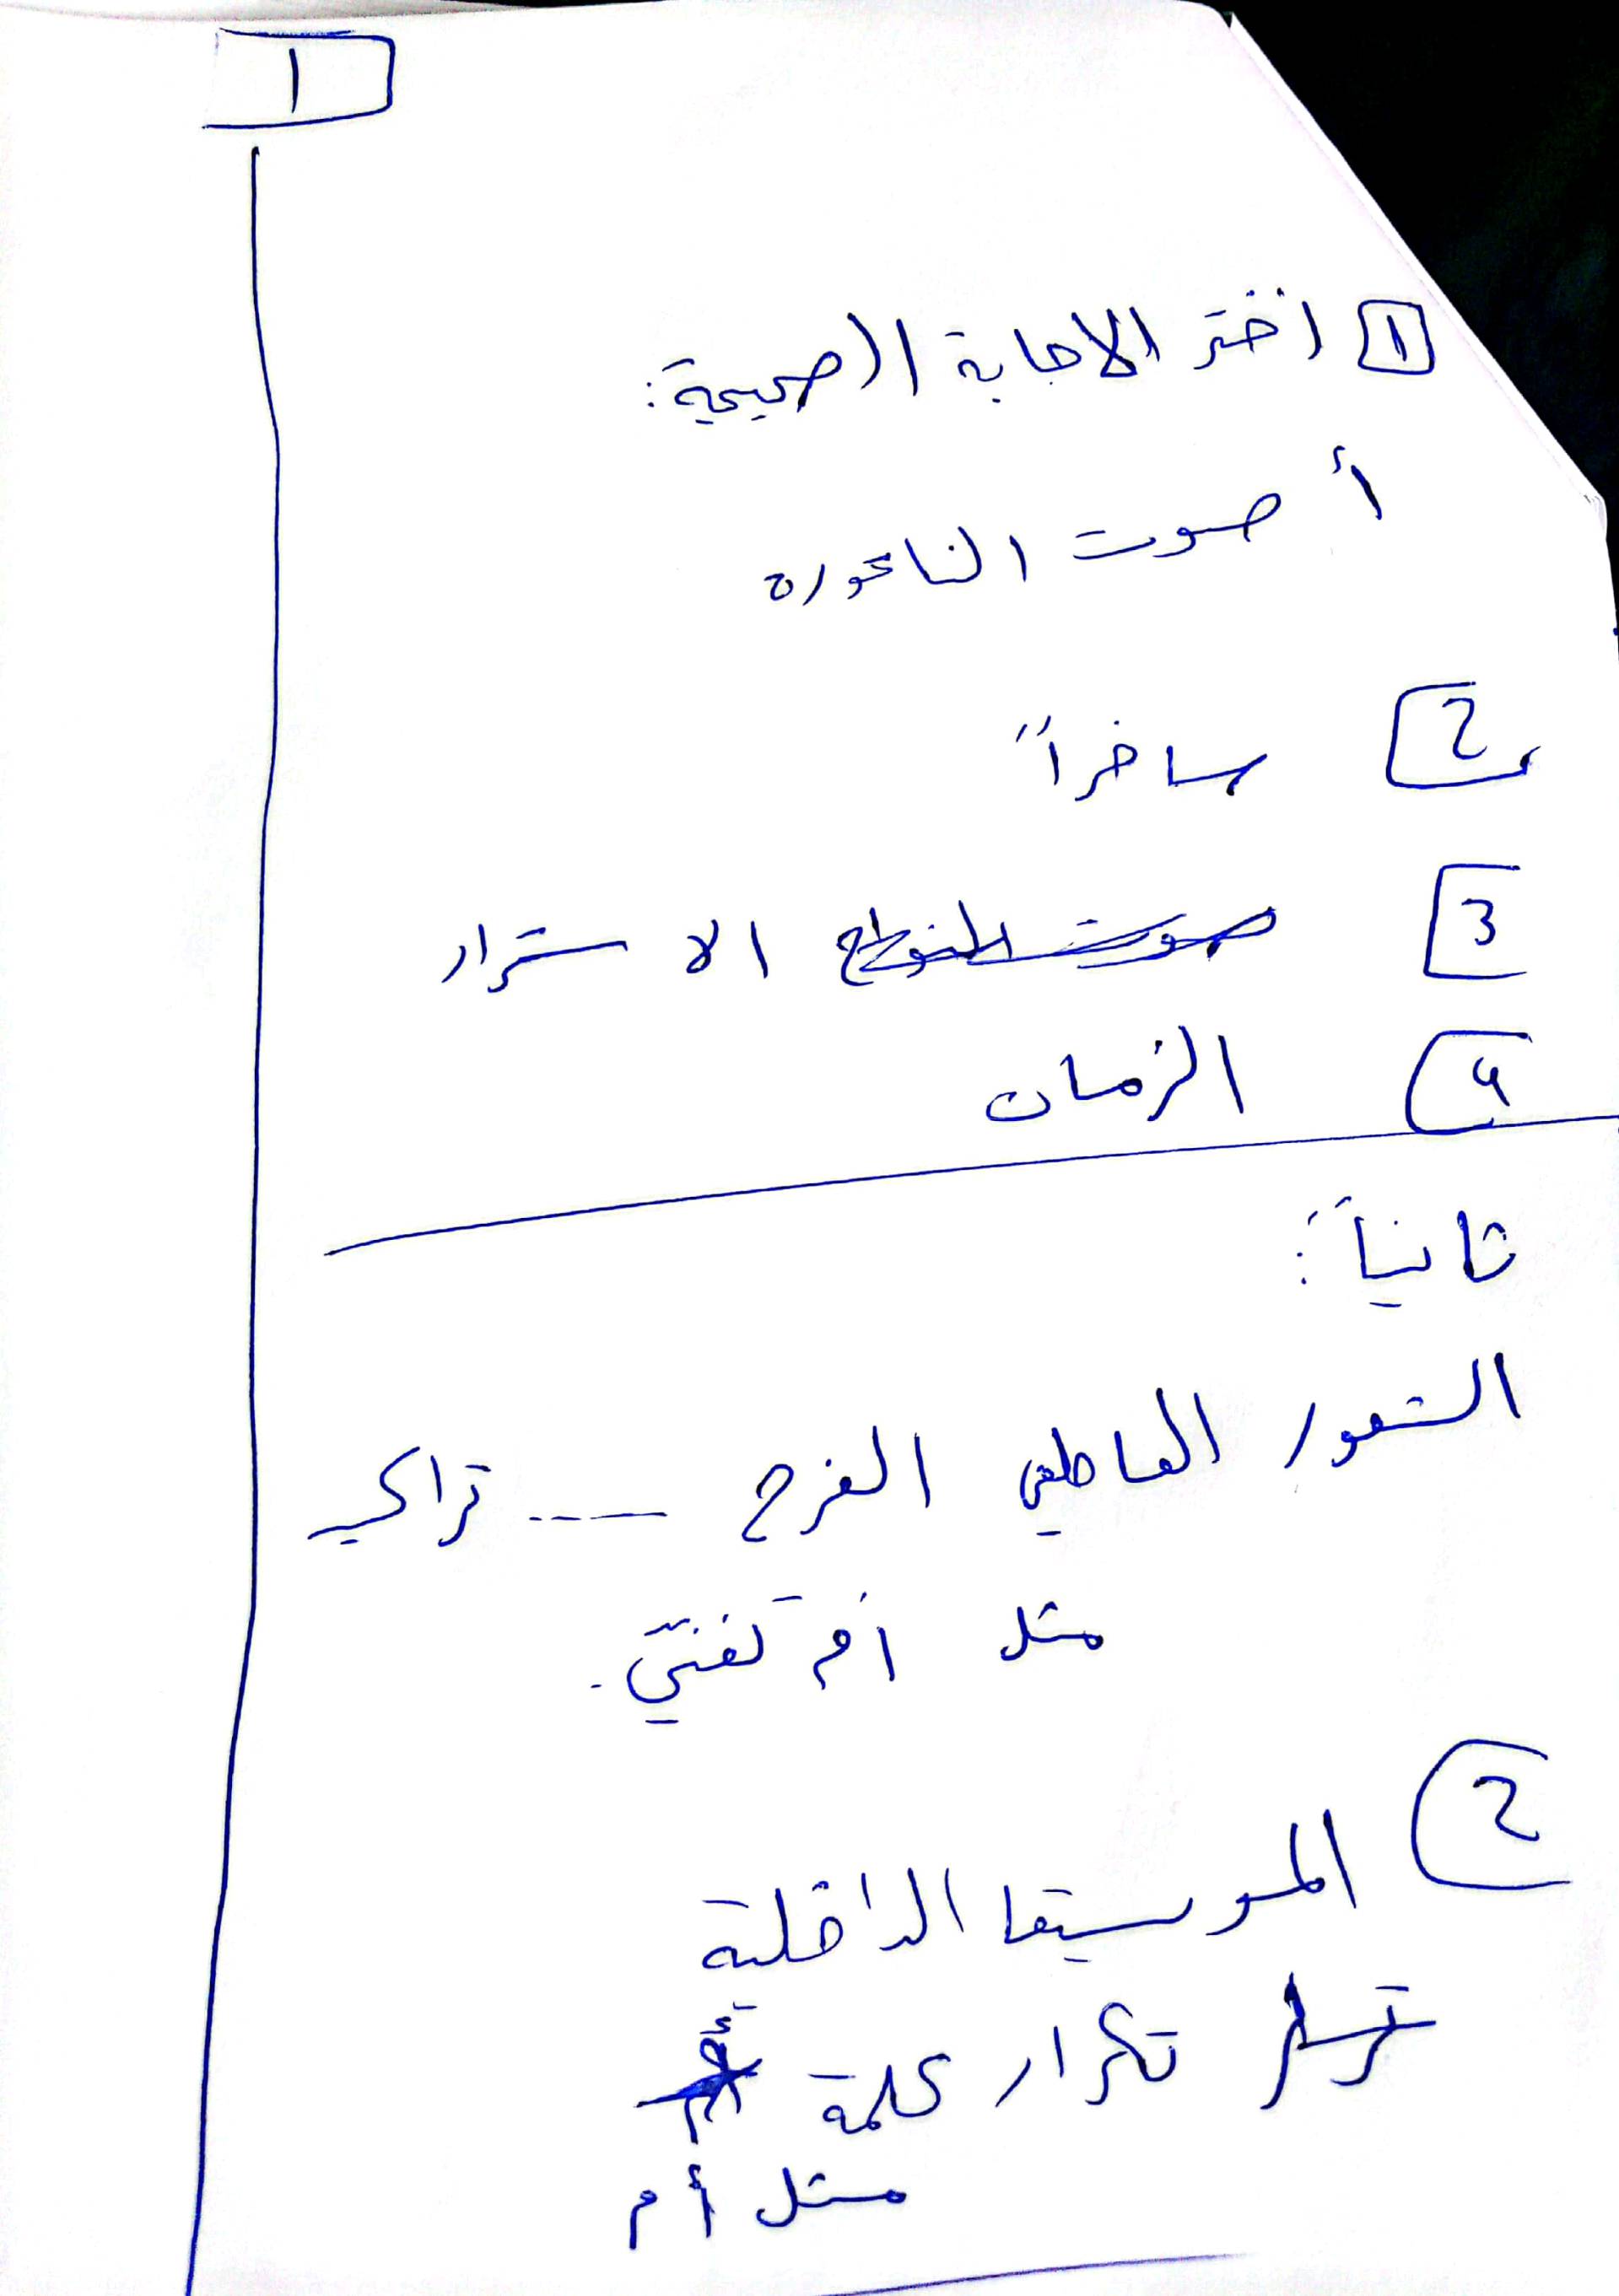 ١
١ اختر الاجابة الصحيحة:
أ صوت الناعوره
2 ساخراً
3 الاسترار
4 الزمان
ثانياً:
الشعور العاطفي الفرح ---- تراكيب
مثل أم تغنّي.
2
الموسيقا الداخلية
تكرار كلمة
مثل أم